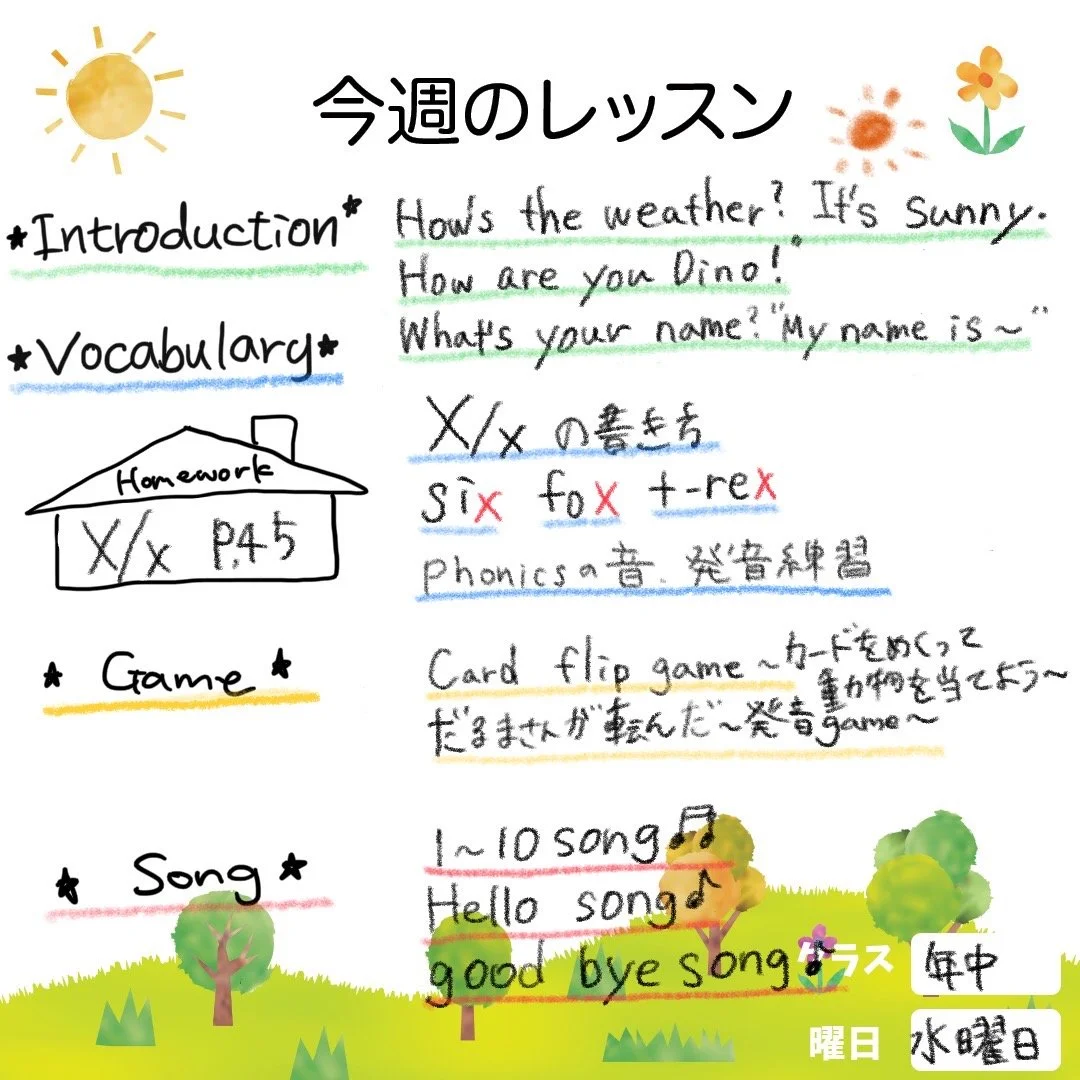 今週のレッスン
*Introduction*
How's the weather? It's sunny.
How are you Dino!
What's your name? "My name is~"
*Vocabulary*
X/xの書き方
six fox t-rex
phonicsの音、発音練習
Homework
X/x P.45
* Game *
Card flip game ~カードをめくって
動物を当てよう~
だるまさんが転んだ~発音game~
* Song *
1~10 song♫
Hello song♪
good bye song♪
クラス 年中
曜日 水曜日